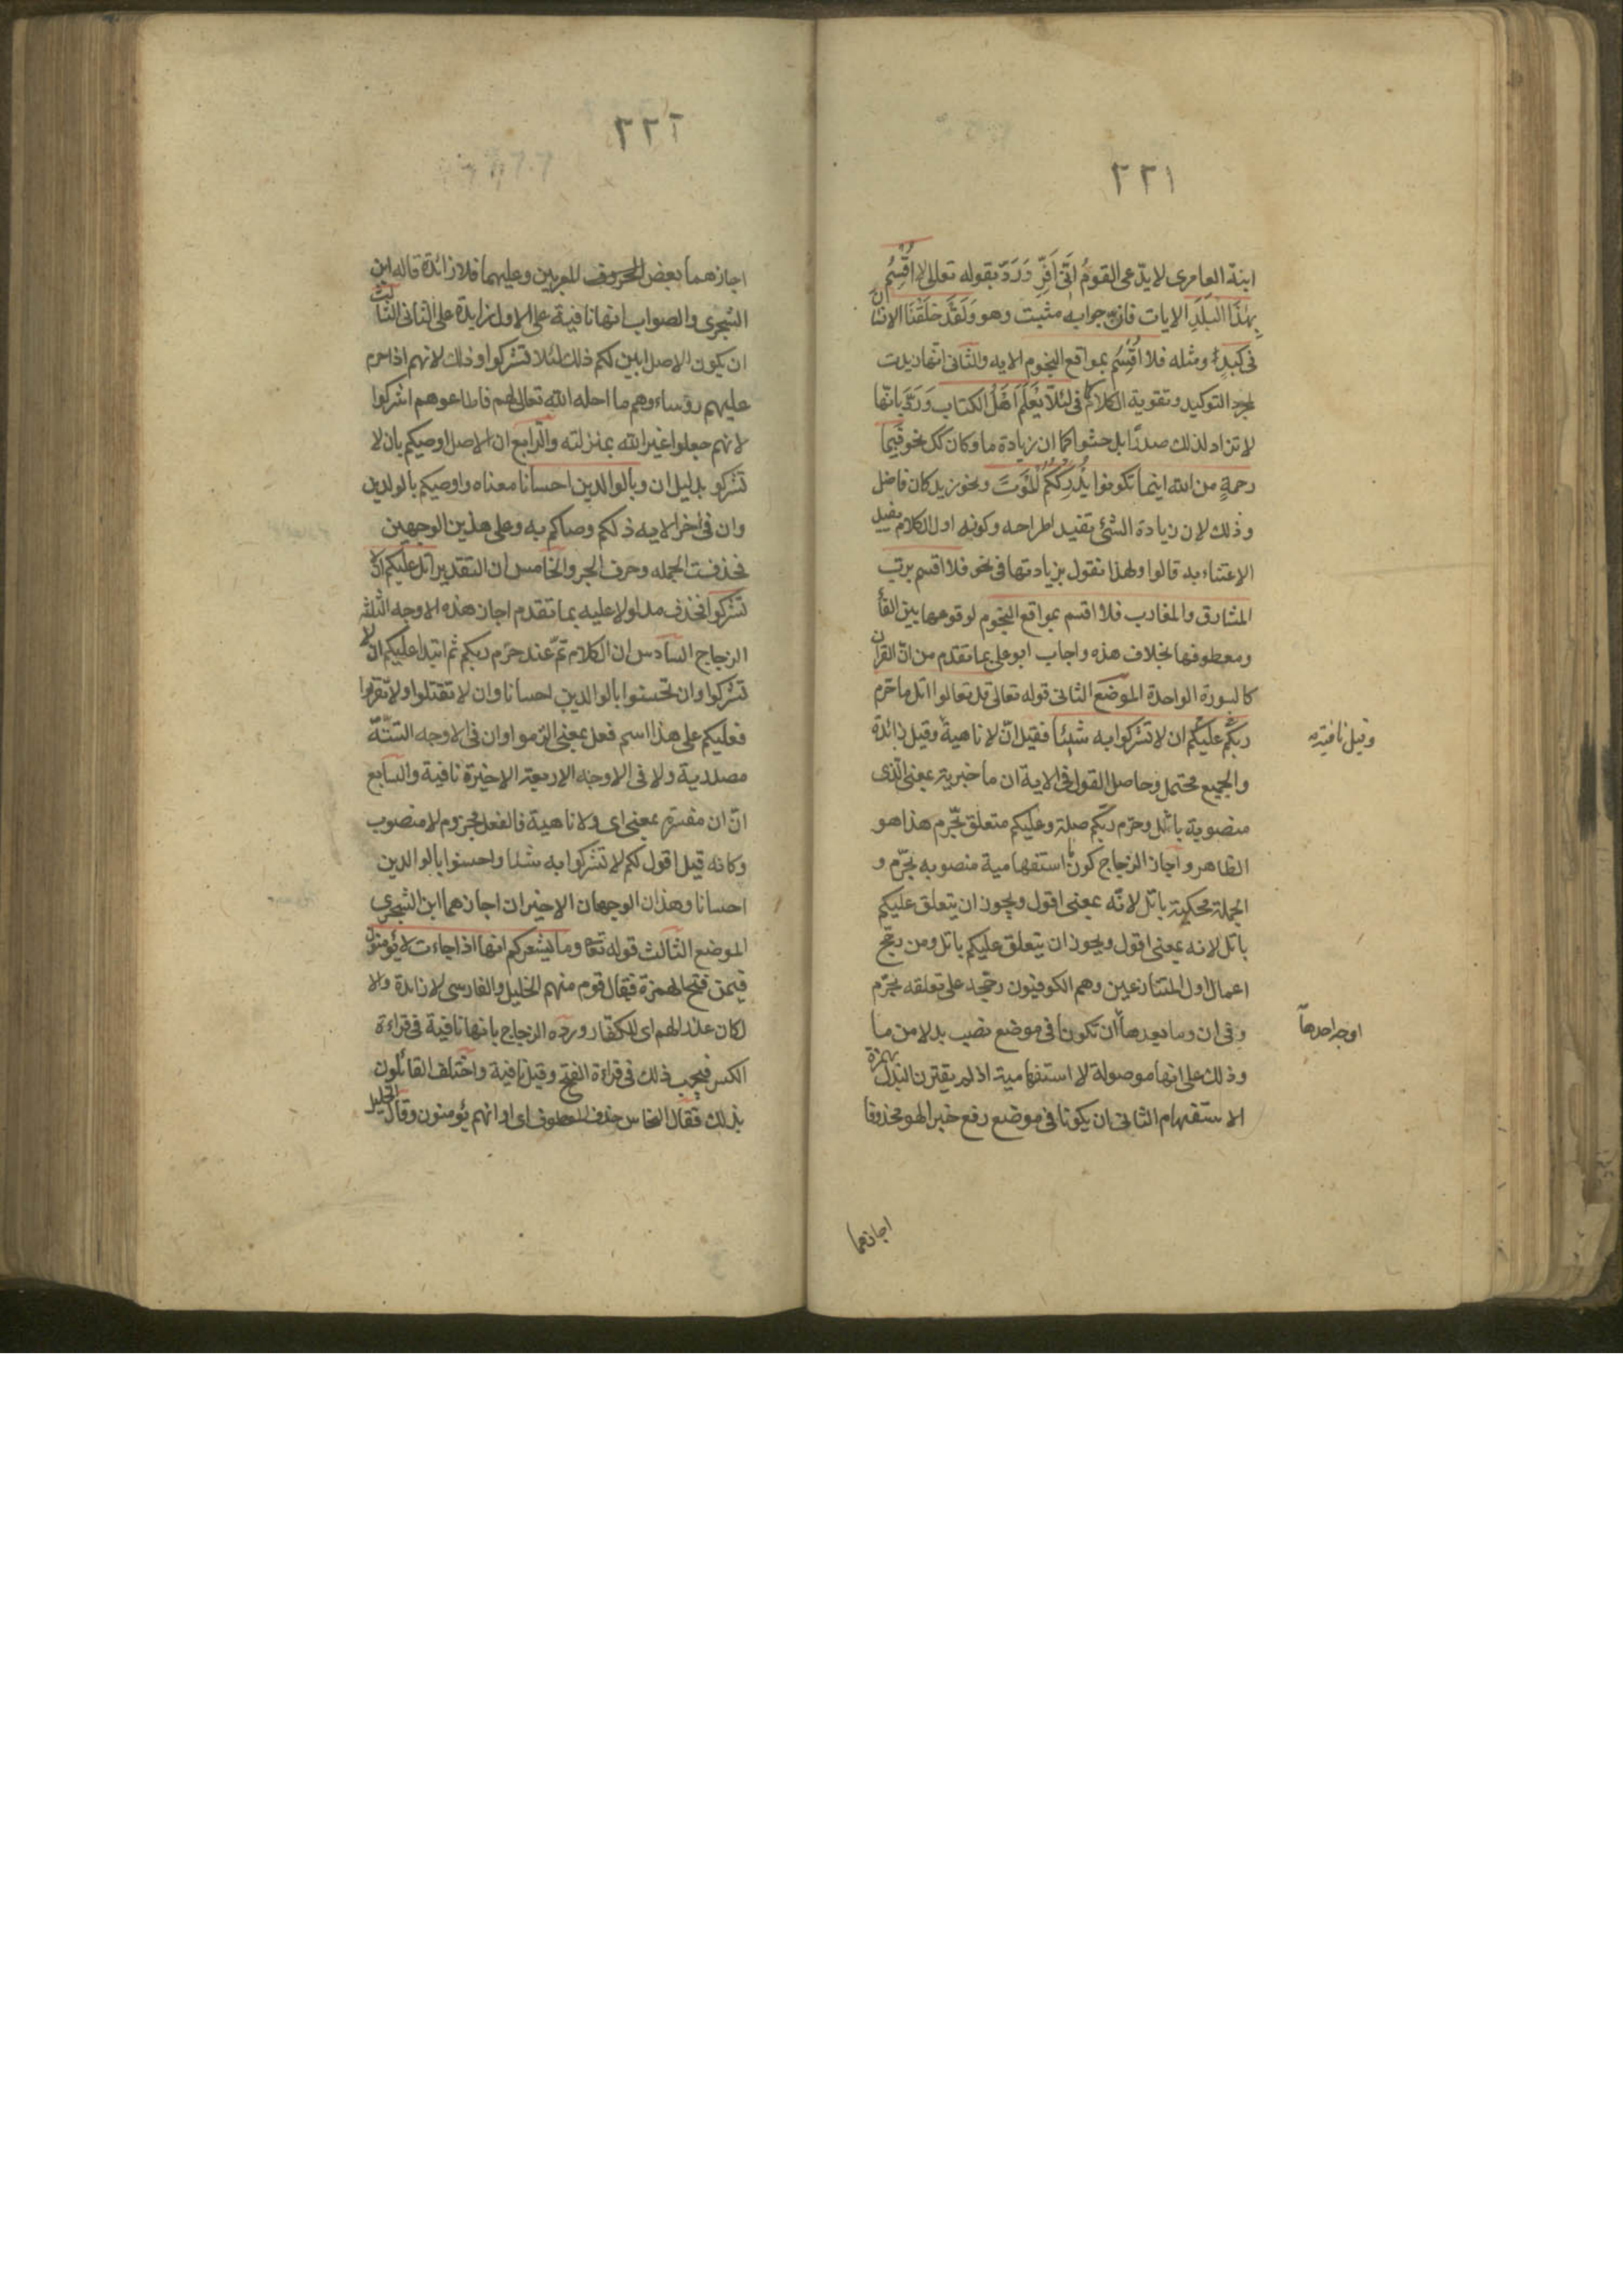 ٢٢١
ابنة العامرى لا يدّعى القومُ انّى اَفِرّ وَرَدّ بقوله تعالى لا اُقْسِمُ
بِهٰذَا البَلَدِ الايات فان جوابه مثبت وهو وَلَقَد خَلَقْنَا الانسان
فى كَبَدٍ ومثله فلا اُقْسِمُ بمواقع النجوم الايه والثانى انها زيدت
لمجرد التوكيد وتقوية الكلام كما فى لِئَلّا يَعْلَمَ اَهْلُ الكتاب وَرَدّ بانها
لا تزاد لذلك صدرًا بل حشوا كما ان زيادة ما وكان كك نحو فبما
رحمةٍ من الله اينما تكونوا يُدْرِكْكُمُ المَوتَ ونحو زيد كان فاضل
وذلك لان زيادة الشئ تفيد اطراحه وكونه اول الكلام يفيد
الاعتناء به قالوا ولهذا نقول بزيادتها فى نحو فلا اقسم برب
المشارق والمغارب فلا اقسم بمواقع النجوم لوقوعها بين الفأ
ومعطوفها بخلاف هذه واجاب ابو على بما تقدم من انّ القران
كالسورة الواحدة الموضع الثانى قوله تعالى قل تعالوا اتل ما حرم
ربكم عليكم ان لا تشركوا به شيئا فقيل انّ لا ناهية وقيل زائدة
وقيل نافية
والجميع محتمل وحاصل القول فى الاية ان ما خبرية بمعنى الّذى
منصوبة باتل وحرّم ربّكم صلة وعليكم متعلق بحّرم هذا هو
الظاهر واجاز الزجاج كون ما استفهامية منصوبه بحّرم و
الجملة محكية باتل لانّه بمعنى اقول ويجوز ان يتعلق عليكم
باتل لانه بمعنى اقول ويجوز ان يتعلق عليكم باتل ومن رجّح
اعمال اول المتنازعين وهم الكوفيون رجّحه على تعلقه بحرّم
وفى ان وما بعدها ان تكونا فى موضع نصب بدلا من ما
اوجه احدها
وذلك على انها موصولة لا استفهامية اذ لم يقترن البدل بهمزة
الاستفهام الثانى ان يكونا فى موضع رفع خبرا لهو محذوفا
اجازهما
٢٢٢
اجازهما بعض المعربين وعليهما فلا زائدة قاله ابن
الشجرى والصواب انها نافية على الاول زايدة على الثانى الثالث
ان يكون الاصل ابين لكم ذلك لئلا تشركوا وذلك لانهم اذا حرم
عليهم رؤساءوهم ما احله الله تعالى لهم فاطاعوهم اشركوا
لانهم جعلوا غير الله بمنزلته والرابع ان الاصل اوصيكم بان لا
تشركو بدليل ان وبالوالدين احسانا معناه واوصيكم بالولدين
وان فى اخر الايه ذلكم وصاكم به وعلى هذين الوجهين
فحذفت الجمله وحرف الجر والخامس ان التقدير اتل عليكم ان لا
تشركوا فحذف مدلولا عليه بما تقدم اجاز هذه الاوجه الثلثه
الزجاج السادس ان الكلام تمّ عند حرّم ربكم ثم ابتدا عليكم ان لا
تشركوا وان تحسنوا بالوالدين احسانا وان لا تقتلوا ولا تقربوا
فعليكم على هذا اسم فعل بمعنى الزموا وان فى الاوجه الستّة
مصدرية ولا فى الاوجه الاربعة الاخيرة نافية والسابع
انّ ان مفسّرة بمعنى اى ولا ناهية فالفعل مجزوم لا منصوب
وكانه قيل اقول لكم لا تشركوا به شيئا واحسنوا بالوالدين
احسانا وهذان الوجهان الاخيران اجازهما ابن الشجرى
الموضع الثالث قوله تعا وما يشعركم انها اذا جاءت لا يؤمنون
فيمن فتح الهمزة فقال قوم منهم الخليل والفارسى لا زائدة والا
لكان عذرا لهم اى للكفار ورده الزجاج بانها نافية فى قراءة
الكسر فيجب ذلك فى قراءة الفتح وقيل نافية واختلف القائلون
بذلك فقال النحاس حذف المعطوف اى او انهم يؤمنون وقال الخليل